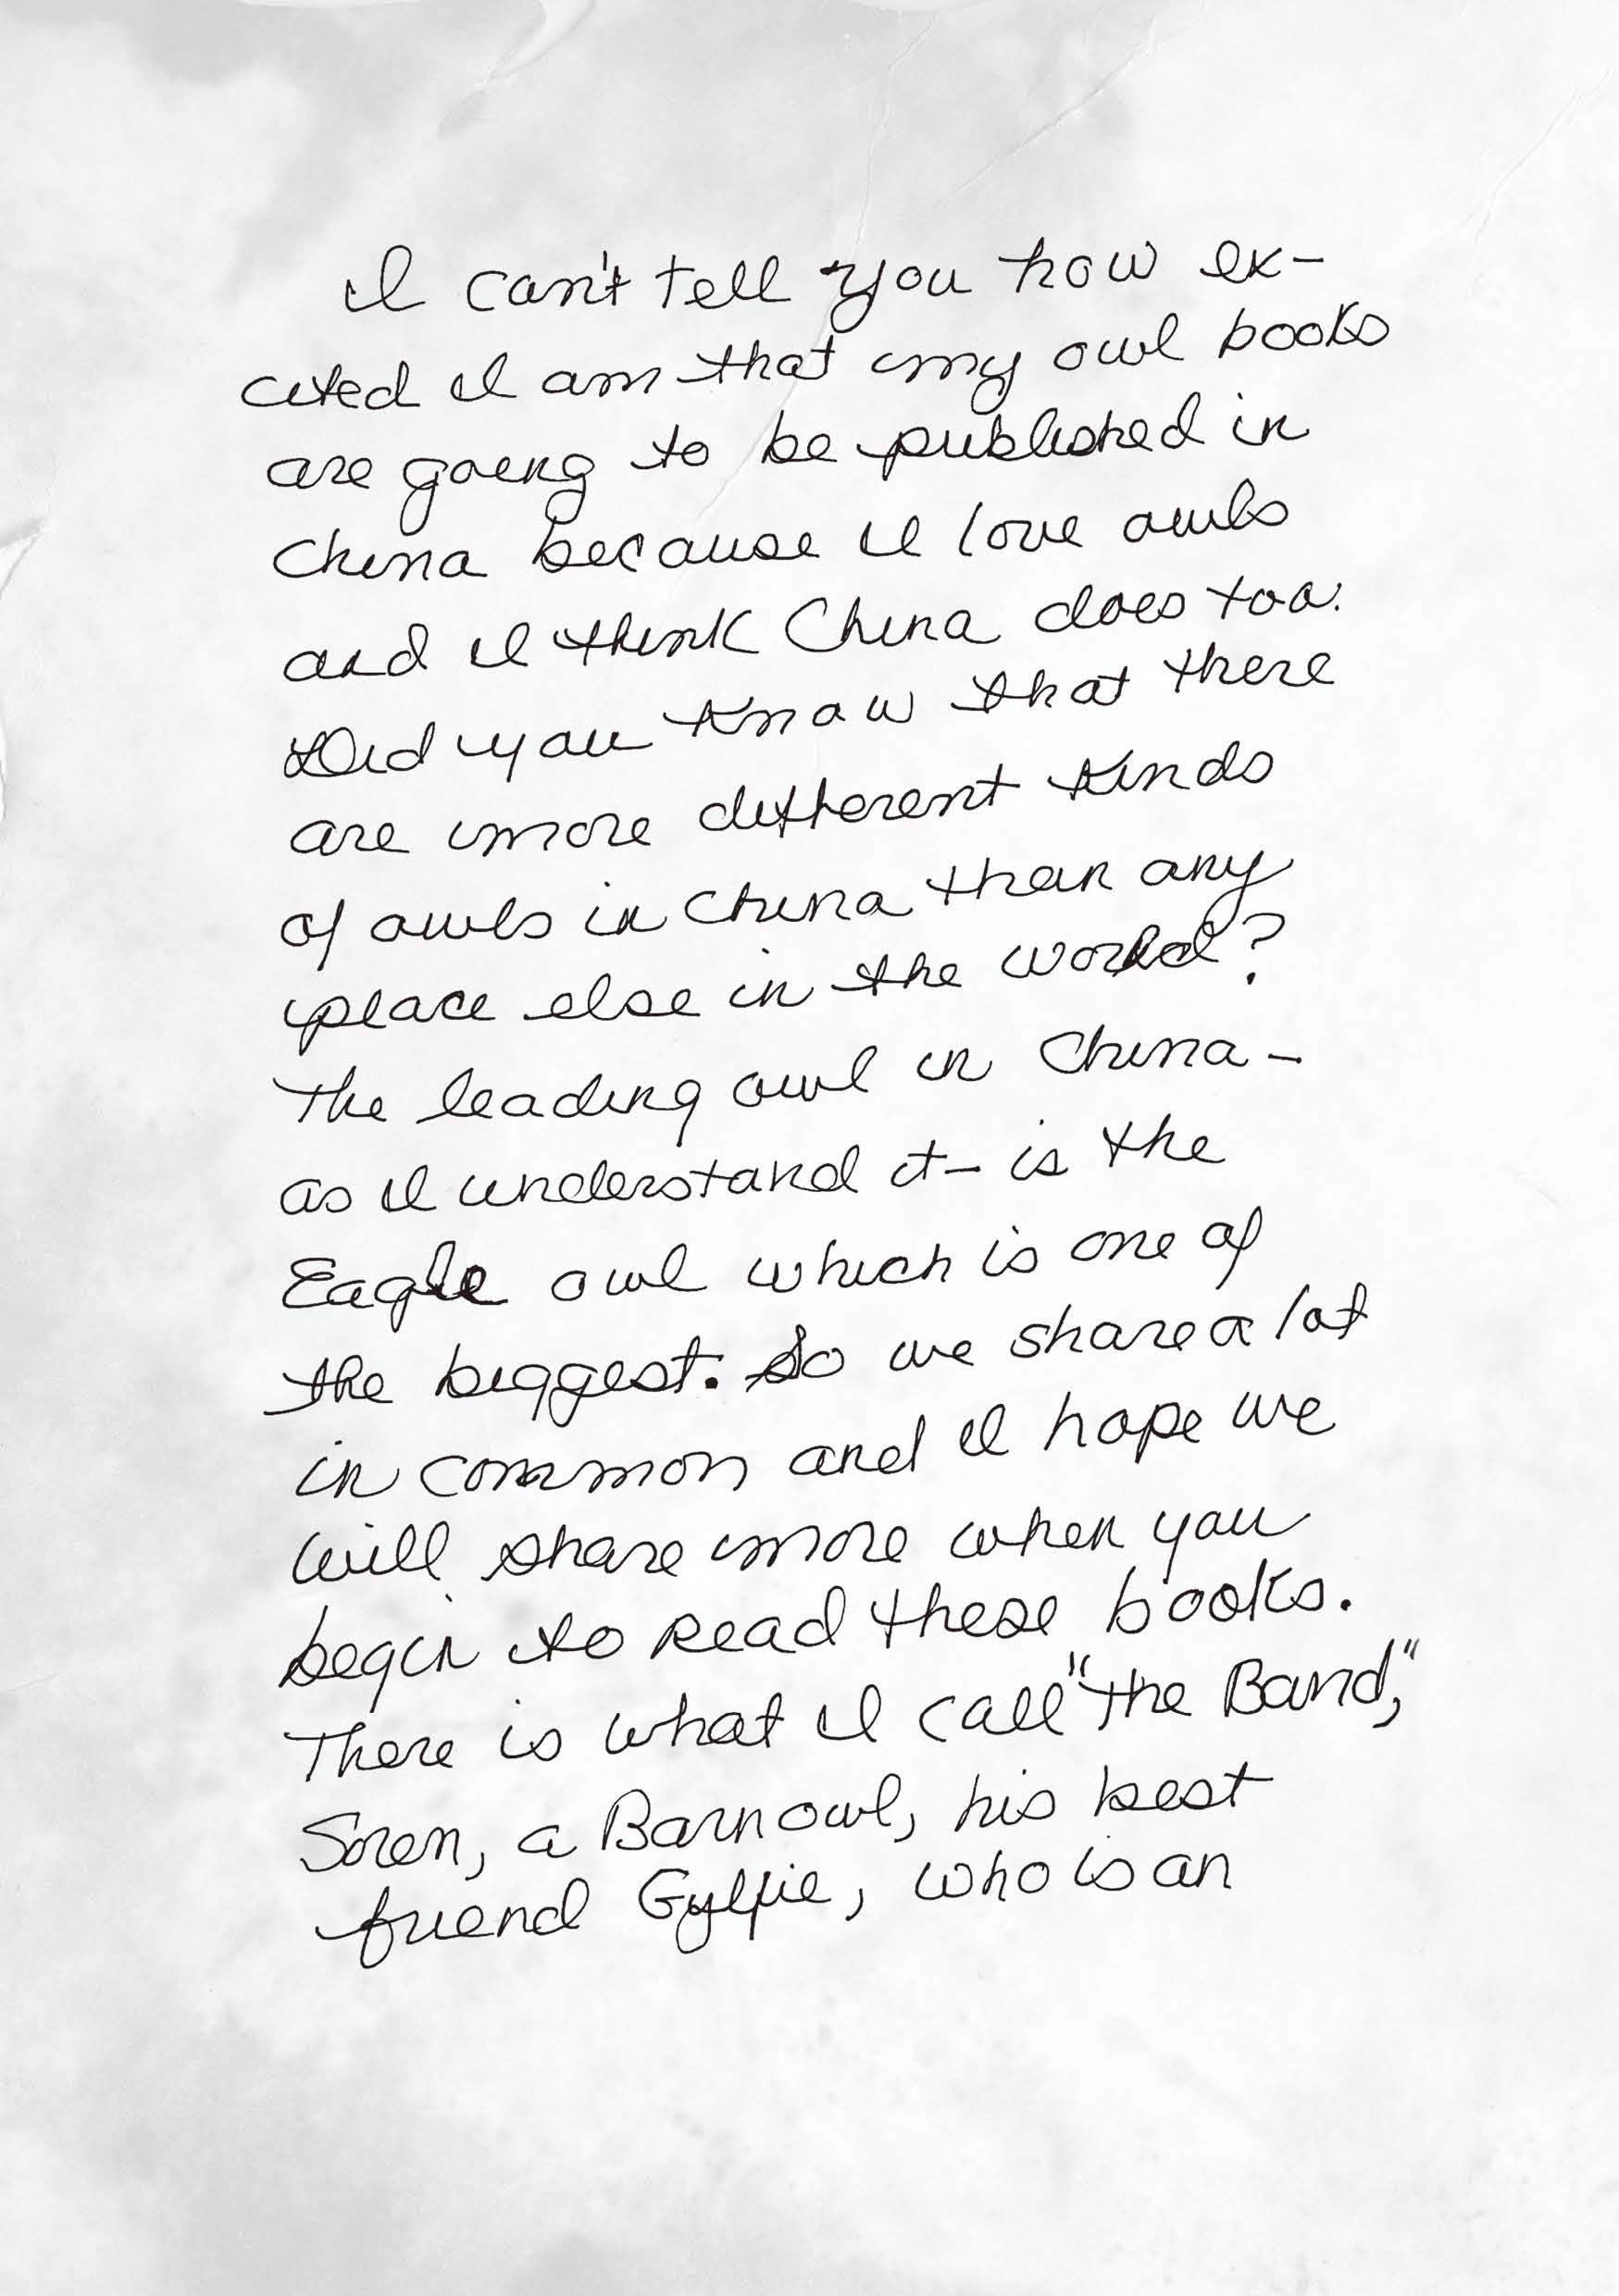 I can't tell you how ex-
cited I am that my owl books
are going to be published in
China because I love owls
and I think China does too.
Did you know that there
are more different kinds
of owls in China than any
place else in the world?
The leading owl in China -
as I understand it - is the
Eagle owl which is one of
the biggest. So we share a lot
in common and I hope we
will share more when you
begin to read these books.
There is what I call "the Band,"
Soren, a Barn owl, his best
friend Gylfie, who is an